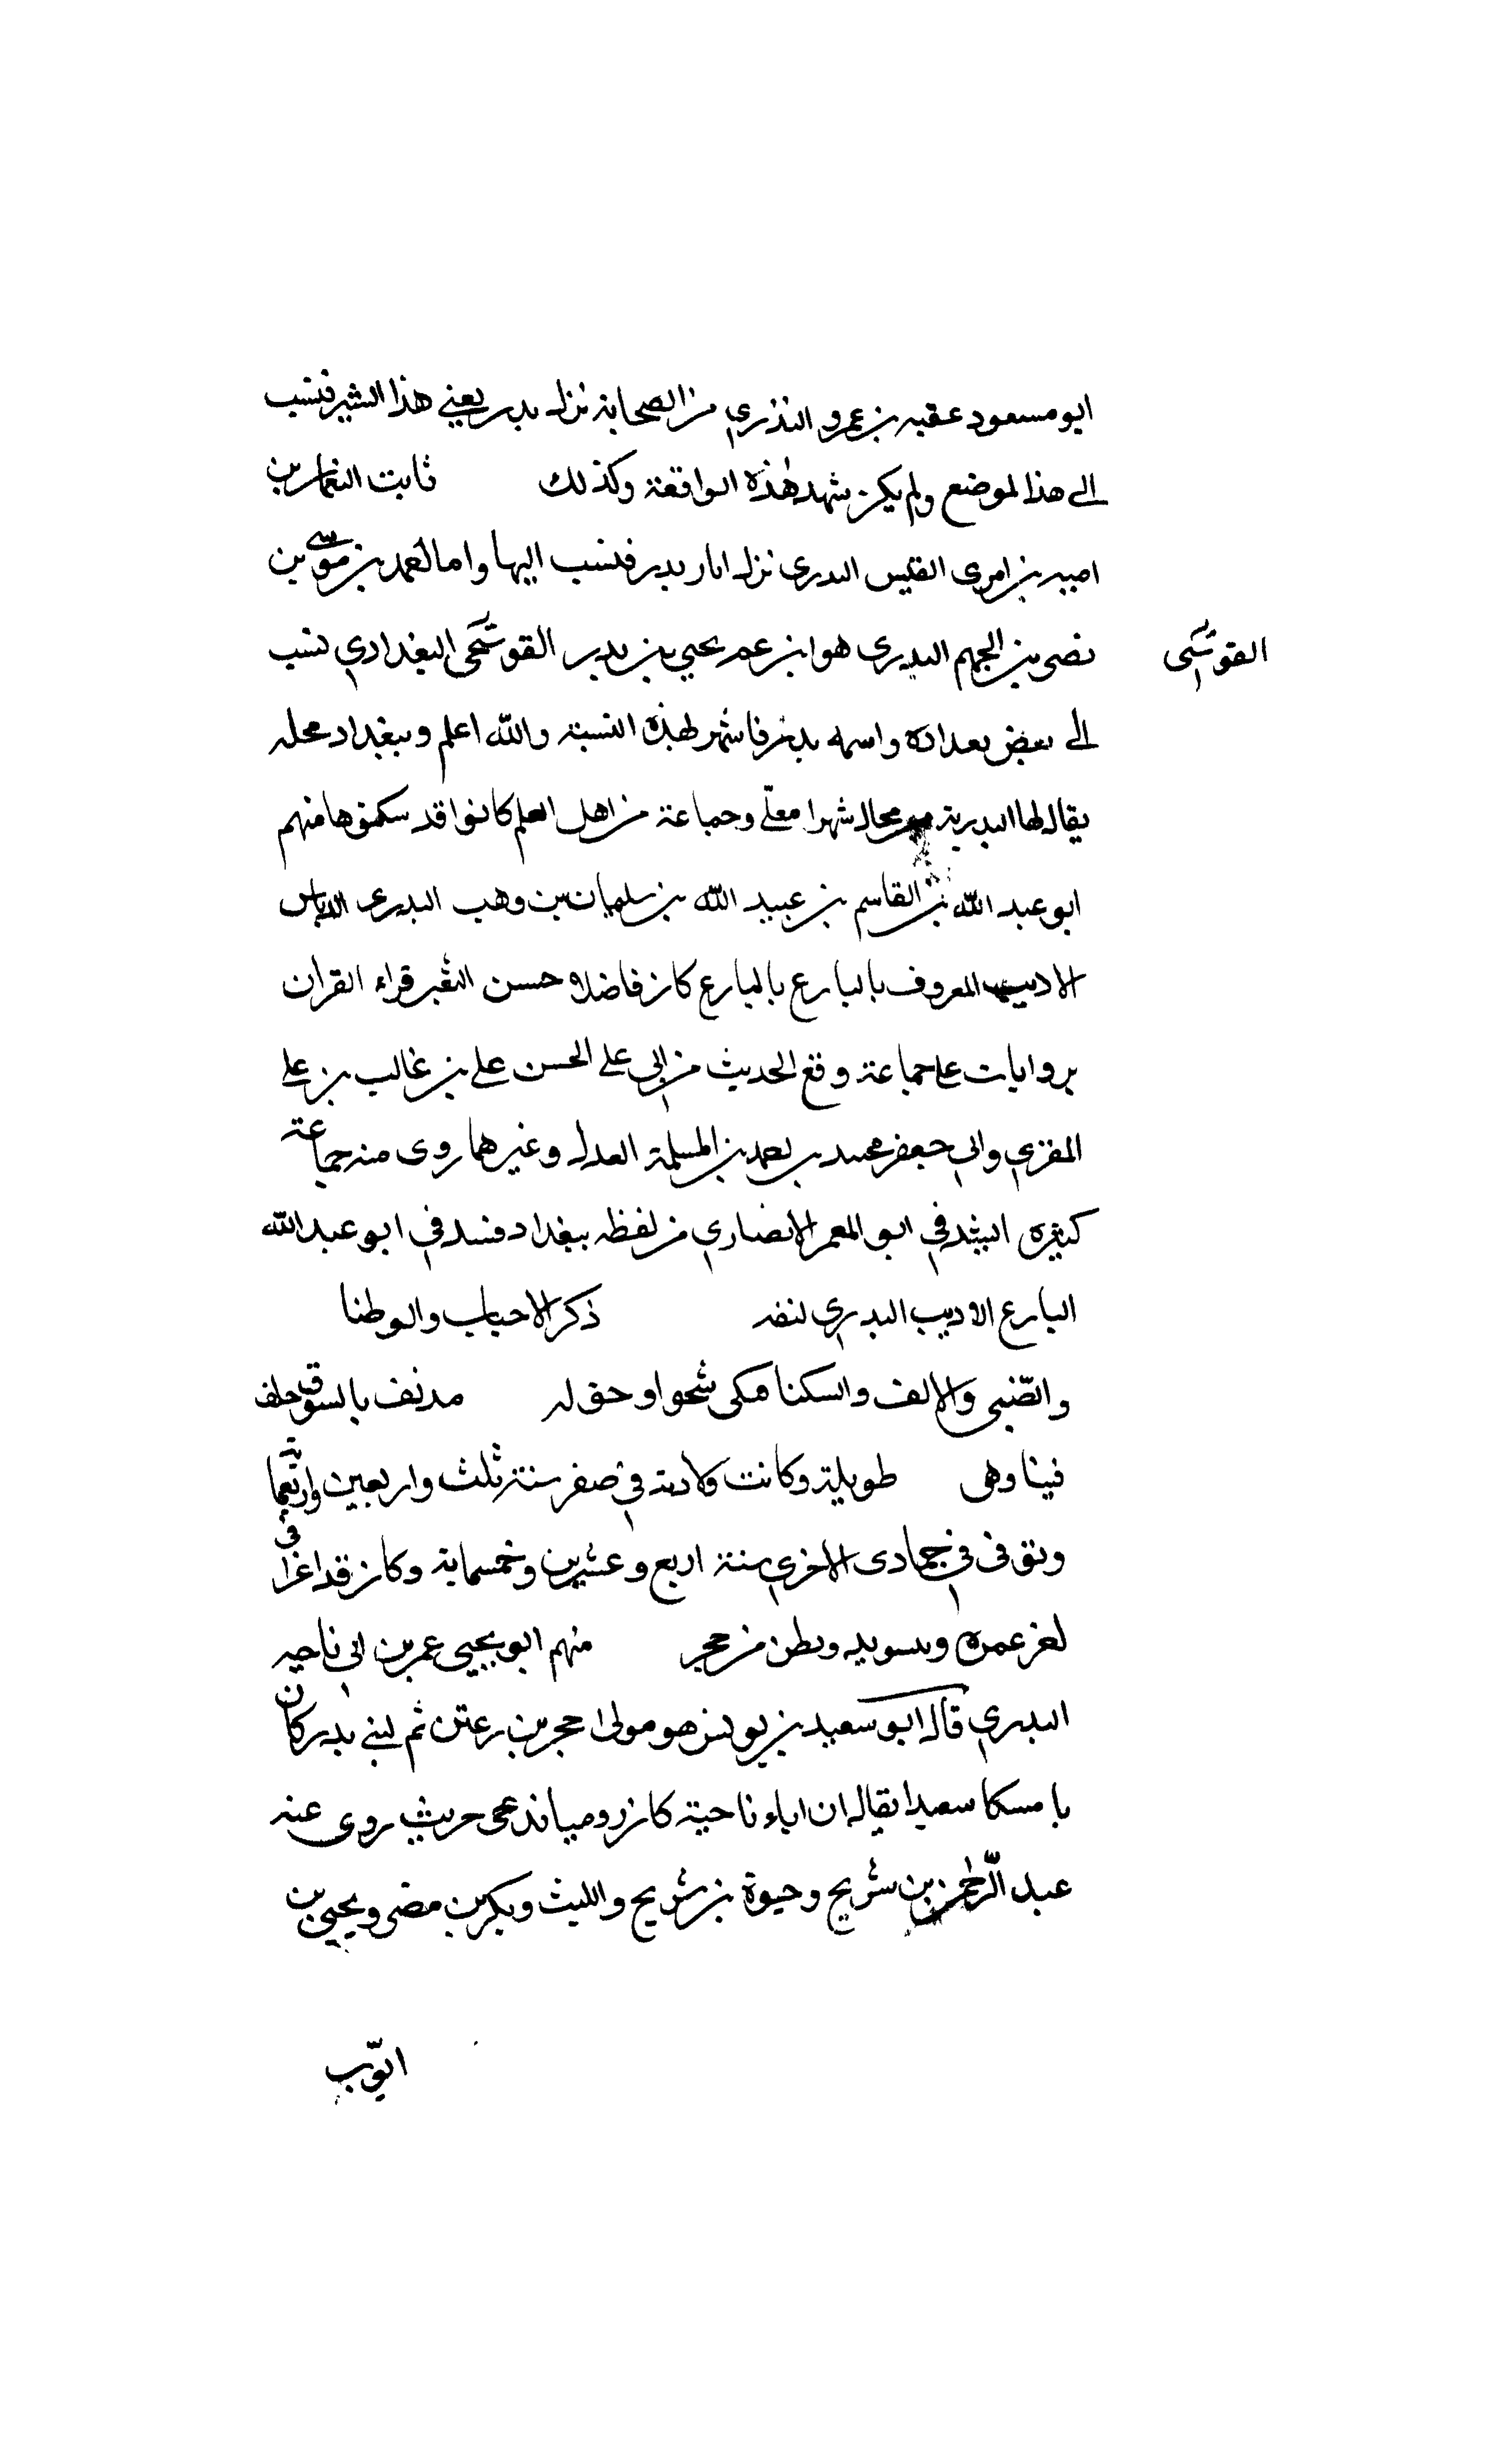 ابو مسعود عقبه بن عمرو البدري من الصحابة نزل بدر يعني هذا البئير فنسب
الى هذا لموضع ولم يكن شهد هذه الواقعة وكذلك ثابت النعمان بن
اميه بن امرى القيس البدرى نزل ابار بدر فنسب اليها واما احمد بن موسى بن
نصر بن الجهم البدرى هو ابن عم يحيي بن بدر القوشحى البغدادي نسب
القوشى
الى بعض بعداده واسمه بدر فاشهر لهذه النسبة والله اعلم وببغداد محله
يقال لها البدرية من محال شهرا معلّى وجماعة من اهل العلم كانوا قد سكنوها منهم
ابو عبد الله بن القاسم بن عبيد الله بن سليمان بن وهب البدرى الدباس
الاديب المعروف بالبارع بالبارع كان فاضلا حسن الشعر قراء القران
بروايات على جماعة وقع الحديث من ابى على الحسن على بن غالب بن على
المقري وابي جعفر محمد بن احمد بن المسلمة العدل وغيرهما روى منه جماعة
كثيره انشدني ابو المعمر الانصاري من لفظه ببغداد فنشدني ابو عبد الله
البارع الاديب البدري لنفسه ذكر الاحباب والوطنا
والصّبى والالف والسكنا فبكى شجوا وحق له مدنف بالشوق حلف
فينا وهى طويلة وكانت ولادته في صفر سنة ثلث واربعين واربعما ية
وتوفى في جمادى الاخرى سنة اربع وعشرين وخمسماية وكان قد اغزا فى
لعز عمره وبسويد وبطن من حجر منهم ابو يحيي عمر بن ابى ناحيه
البدري قال ابو سعيد بن يونس هو مولى حجر بن رعتن ثم لبني بدر كان
با مسكا سعيدا يقال ان اباء ناحية كان روميا ندعى حريث روى عنه
عبد الرّحمن بن شريح وحيوة بن شريح والليث وبكر بن مضى ويحيي بن
ايوّب